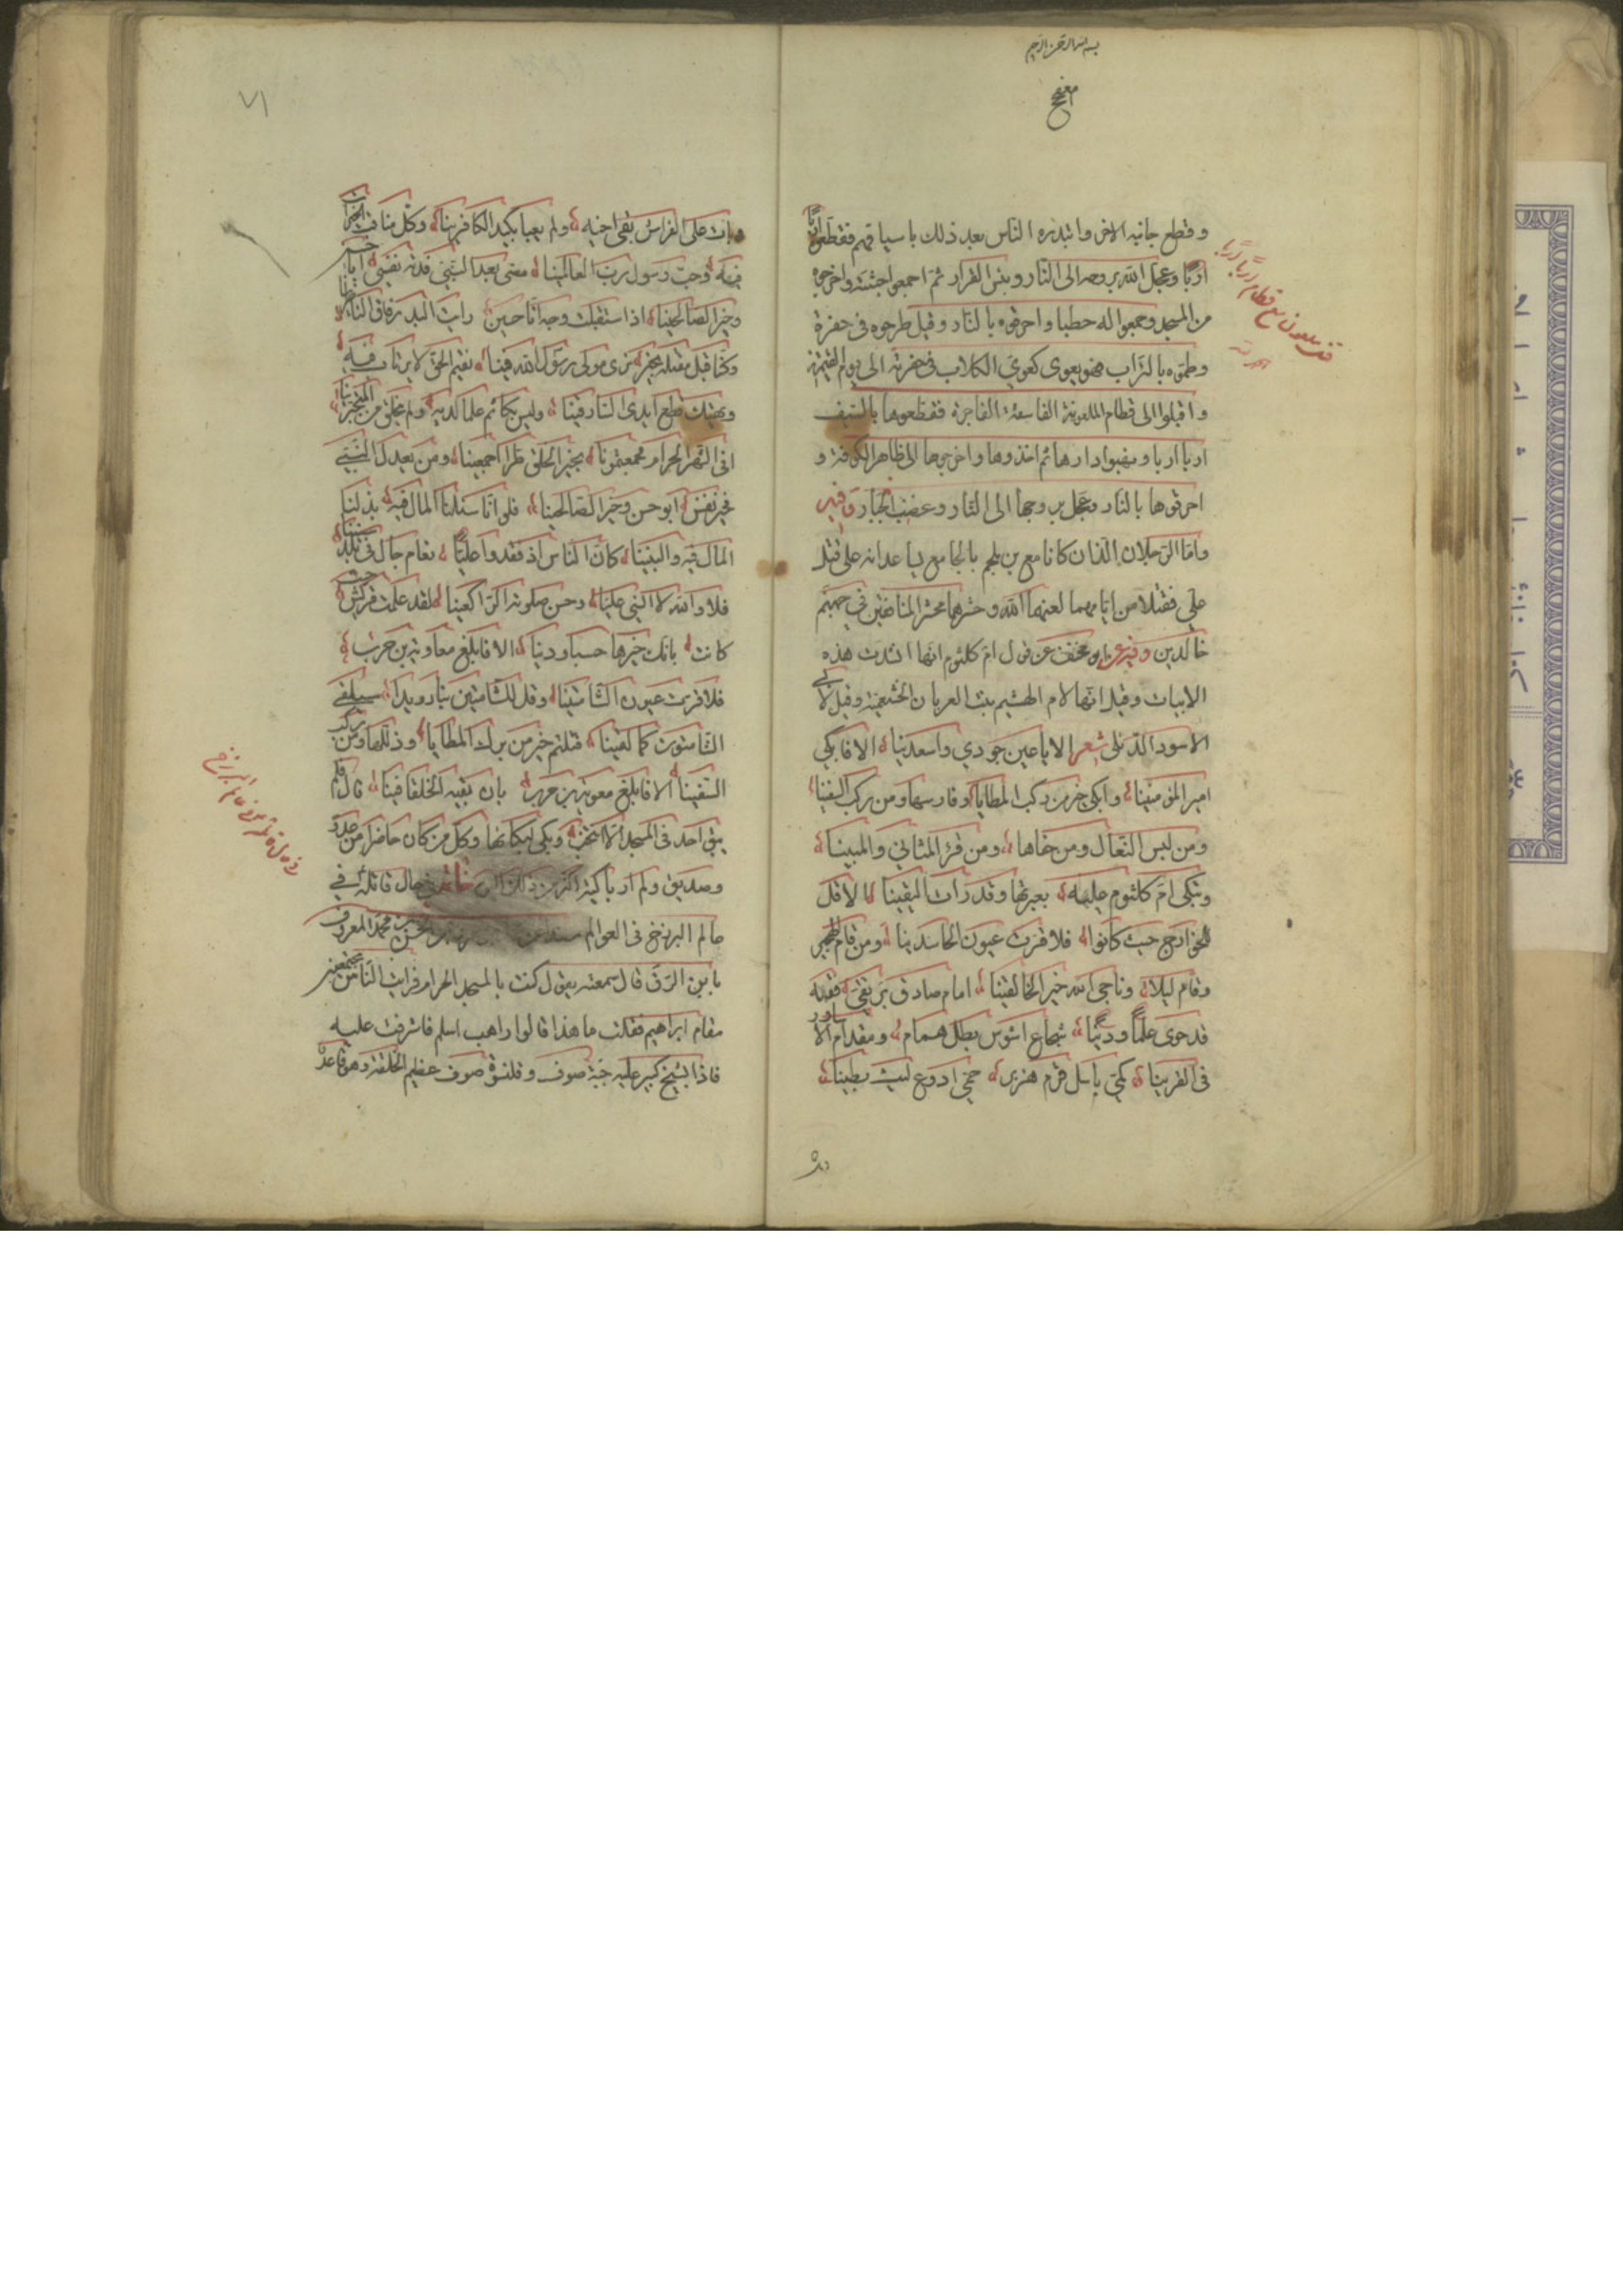 بسم الله الرحمن الرحيم
وقطع جانبه الاخر وابتدره الناس بعد ذلك باسيافهم فقطعوه اربا
اربا وعجل الله بروحه الى النار وبئس القرار ثم اجمعوا جثته واخرجوه
من المسجد وجمعوا له حطبا واحرقوه بالنار وقيل طرحوه فى حفرة
وطموه بالتراب فهو يعوى كعوى الكلاب فى حفرته الى يوم القيمة
واقبلوا الى قطام الملعونة الفاسقة الفاجرة فقطعوها بالسيف
اربا اربا ونهبوا دارها ثم اخذوها واخرجوها الى ظاهر الكوفة و
احرقوها بالنار وعجل بروحها الى النار وغضب الجبار وفيه
واما الرجلان الذان كانا مع بن ملجم بالجامع يساعدانه على قتل
على فقتلا من ايامهما لعنهما الله وحشرهما محشر المنافقين فى جهنم
خالدين وفيه عن ابو مخنف عن قول ام كلثوم انها انشدت هذه
الابيات وقيل انها لام الهشيم بنت العريان الخثعمية وقيل لابى
الاسود الدئلى شعر الا ياعين جودي واسعدينا الا فابكي
امير المؤمنينا وابكى خير من ركب المطايا وفارسها ومن ركب السفينا
ومن لبس النعال ومن حذاها ومن قرء المثاني والمبينا
وتبكى ام كلثوم عليه بعبرتها وقد رات اليقينا الا قل
للخوارج حيث كانوا فلا قرت عيون الحاسدينا ومن قام الهجير
وقام ليلا وناجى الله خير الخالقينا امام صادق بر تقى فقيه
قد حوى علما ودينا شجاع اشوس بطل همام ومقدام الاساود
فى العرينا كمى باسل قرم هزبر حمى اروع ليث بطينا
٧١
وبات على الفراش يقى اخيه ولم يعبا بكيد الكافرينا وكل مناقب الخيرات
فيه وحب رسول رب العالمينا مضى بعد النبى فدته نفسى ابا حسن
وخير الصالحينا اذا استقبلت وجه ابا حسين رايت البدر فاق الناظرينا
وكنا قبل مقتله بخير نرى مولى رسول الله فينا يقيم الحق لا يرتاب فيه
ويهتك قطع ايدى السارقينا وليس بكاتم علما لديه ولم يخلق من المتجبرينا
افى الشهر الحرام فجعتمونا بخير الخلق طرا اجمعينا ومن بعد النبى
فخير نفس ابو حسن وخير الصالحينا فلو انا سئلنا المال فيه بذلنا
المال فيه والبنينا كان الناس اذ فقدوا عليا نعام جال فى بلد سنينا
فلا والله لا انسى عليا وحسن صلوته فى الراكعينا لقد علمت قريش حيث
كانت بانك خيرها حسبا ودينا الا فابلغ معاوية بن حرب
فلا قرت عيون الشامتينا وقل للشامتين بنا رويدا سيلقى
الشامتون كما لقينا قتلتم خير من ركب المطايا وذللها ومن ركب
السفينا الا فابلغ معوية بن حرب بان بقية الخلفا فينا قال فلم
يبق احد فى المسجد الا انتحب وبكى لبكائها وكل من كان حاضرا من عدو
وصديق ولم ار باكية اكثر من ذلك اليوم حال قاتله فى
عالم البرزخ فى العوالم محمد المعروف
بابن الرقى قال سمعته يقول كنت بالمسجد الحرام فرايت الناس مجتمعين
مقام ابراهيم فقلت ما هذا قالوا راهب اسلم فاشرفت عليه
فاذا بشيخ كبير عليه جبة صوف وقلنسوة صوف عظيم الخلقة وهو قاعد